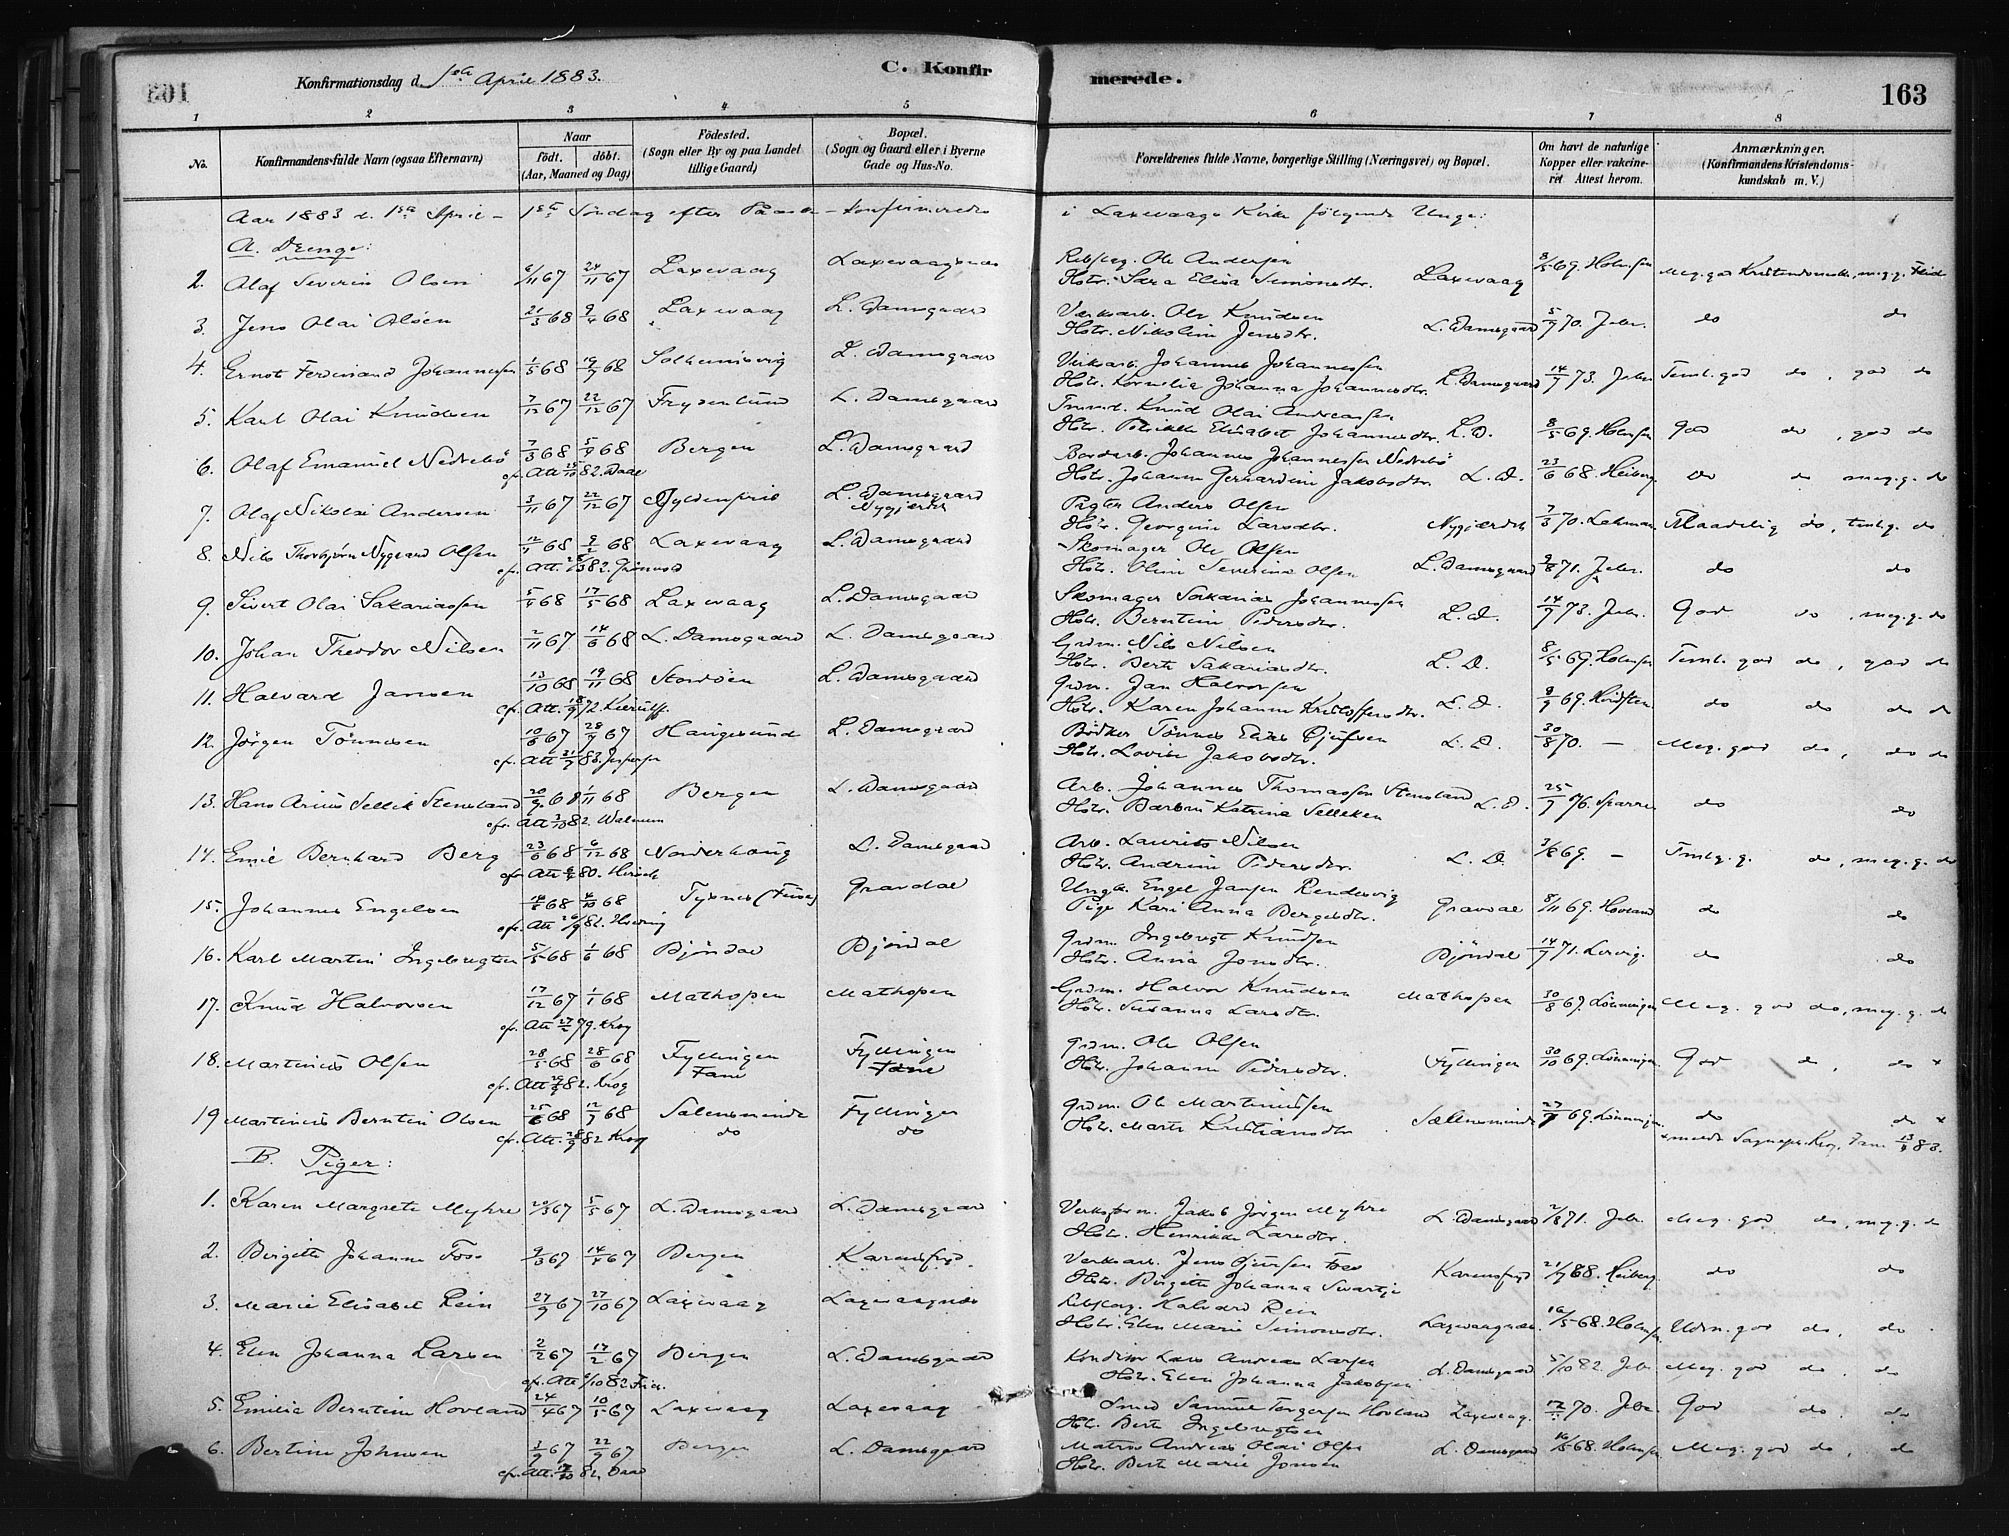 Konfirmationsdag d. 1ste April 1883.
C. Konfirmerede.
163
1 2 3 4 5 6 7 8
No.
Konfirmandens fulde Navn (ogsaa Efternavn)
Naar
födt. döbt.
(Aar, Maaned og Dag)
Födested.
(Sogn eller By og paa Landet
tillige Gaard)
Bopæl.
(Sogn og Gaard eller i Byerne
Gade og Hus-No.
Forældrenes fulde Navne, borgerlige Stilling (Næringsvei) og Bopæl.
Om havt de naturlige
Kopper eller vakcine-
ret Attest herom.
Anmærkninger.
(Konfirmandens Kristendoms-
kundskab m. V.)
Aar 1883 d. 1ste April – 1ste Söndag efter Paaske – konfirmeredes i Laxevaags Kirke fölgende Unge:
A. Drenge:
2. Olaf Severin Olsen 6/11 67 24/11 67 Laxevaag Laxevaagnes
Ole Andersen
Hstr. Sara Elisa Simonsdtr. Laxevaag 8/5 69. Holmsen
3. Jens Olai Olsen 21/3 68 9/4 68 Laxevaag L. Damsgaard
Værksarb. Ole Knudsen
Hstr. Nikoline Jensdtr. L. Damsgaard 5/9 70. Jebe. do do
4. Ernst Ferdinand Johannessen 1/5 68 19/7 68 Solheimsvig L. Damsgaard
Johannes Johannessen
Hstr. Kornelia Johanna Johannesdtr. L. Damsgaard 14/7 73. Jebe Teml. god do, god do
5. Karl Olai Knudsen 7/12 67 22/12 67 Frydenlund L. Damsgaard
Knud Olai Andreassen
Hstr. Elisabet Johannesdtr. L.D. 8/5 69. Holmsen God do, god do
6. Olaf Emanuel Nedrebö 7/3 68 5/9 68 Bergen L. Damsgaard
cfr. Att. 82. Daae
Johannes Johannessen Nedrebö
Hstr. Johanne Gerhardine Jakobsdtr. L.D. 23/6 68. Heiberg do do meg. g. do
7. Olaf Nikolai Andersen 3/11 67 22/12 67 Gyldenpris L. Damsgaard
Nygjærdet
Anders Olsen
Hstr. Georgine Larsdtr. Nygjærdet 7/3 70. Lehman Maadelig do, teml. g. do
8. Nils Thorbjörn Nygaard Olsen 12/1 68 9/2 68 Laxevaag L. Damsgaard
Skomager Ole Olsen
Hstr. Oline Severine Olsen L. Damsgaard 9/8 71. Jebe. do do
9. Sivert Olai Sakariassen 5/4 68 17/5 68 Laxevaag L. Damsgaard
Skomager Sakarias Johannessen
Hstr. Berntine Pedersdtr. L.D. 14/7 73. Jebe. God do, meg. g. do
10. Johan Theodor Nilsen 2/11 67 14/6 68 L. Damsgaard L. Damsgaard
Grdm. Nils Nilsen
Hstr. Berte Sakariasdtr. L.D. 8/5 69. Holmsen Teml. god do, god do
11. Halvard Jansen 13/10 68 19/11 68 Stordöen L. Damsgaard
cfr. Att. 18/9 72. Kierulf.
Grdm. Jan Halvorsen
Hstr. Karen Johanne Kristoffersdtr. L.D. do do do do
12. Jörgen Tönnesen 10/6 67 28/7 67 Haugesund L. Damsgaard
cfr. Att. 83. Jespersen
Bödker Tönnes
Hstr. Lovise Jakobsdtr. L.D. 30/8 70. – Meg. god do, do do
13. Hans Arius Sellik Stensland 20/9 68 1/11 68 Bergen L. Damsgaard
cfr. Att. 3/10 82. Walnum
Arb. Johannes Thomassen Stensland
Hstr. Barbra Katrine Selleken L.D. 25/7 76. Sparre do do
14. Emil Bernhard Berg 23/6 68 6/12 68 Norderhoug L. Damsgaard
cfr. Att. 80. Hirsch
Arb. Laurits Nilsen
Hstr. Andrine Pedersdtr. L.D. 69. – Teml. g. do, meg. g. do
15. Johannes Engelsen 68 4/10 68 Tysnes Gravdal
Ungk. Engel Jansen Rendesvig
Pige Kari Anna Bergesdtr. Gravdal 8/11 69. Hovland do do
16. Karl Martin Ingebrigtsen 5/5 68 1/6 68 Bjöndal Bjöndal
Grdm. Ingebrigt Knudsen
Hstr. Anna Jonsdtr. Bjöndal 14/7 71. Lervig. do do
17. Knud Halvorsen 17/12 67 1/1 68 Mathopen Mathopen
cfr. Att. 27/2 79. Krog
Grdm. Halvor Knudsen
Hstr. Susanna Larsdtr. Mathopen 30/8 69. Lönningen Meg. god do, meg. g. do
18. Martinus Olsen 28/5 68 28/6 68 Fyllingen Fyllingen
Fane Fane
cfr. Att. 82. Krog
Grdm. Ole Olsen
Hstr. Johanne Pedersdtr. Fyllingen 30/10 69. Lönningen God do, do x
19 Martinus Berntin Olsen 25/6 68 12/7 68 Sælensminde Fyllingen
do do
cfr. Att. 82 Krog
Grdm. Ole Martinussen
Hstr. Marte Kristiansdtr. Sælensminde 69. Lönningen do do x
x meldt Sognepr. Krog, Fane 83.
B. Piger:
1. Karen Margrete Myhre 20/3 67 5/5 67 L. Damsgaard L. Damsgaard
Jakob Jörgen Myhre
Hstr. Henrikke Larsdtr. L. Damsgaard 2/8 71. Jebe. Meg. god do, meg. g. do
2. Birgitte Johanne Foss 9/3 67 14/4 67 Bergen Karensfryd.
Jens Foss
Hstr. Birgitte Johanna Svartje Karensfryd 21/7 68. Heiberg. do do
3. Marie Elisabet Rein 27/9 67 27/10 67 Laxevaag Laxevaagnes
Halvard Rein
Hstr. Elen Marie Simonsdtr. Laxevaagnes. 68. Holmsen Udm. god do, do
4. Elen Johanna Larsen 2/2 67 17/2 67 Bergen L. Damsgaard
Konditor Lars Andreas Larsen
Hstr. Elen Johanna Jakobsen L. Damsgaard 5/10 82. Jebe. Meg. god do, do
5. Emilie Berntine Hovland 24/4 67 10/5 67 Laxevaag Laxevaag
Smed Samuel Torgersen Hovland
Hstr. Berte Ingebrigtsen Laxevaag. 70. Jebe. God do. do
6. Bertine Johnsen 3/9 67 22/9 67 Bergen L. Damsgaard
cfr. Att. 82, Daae
Matros Andreas Olai Olsen
Hstr. Berte Marie Jonsen L. Damsgaard 68. Holmsen Meg. god do, do